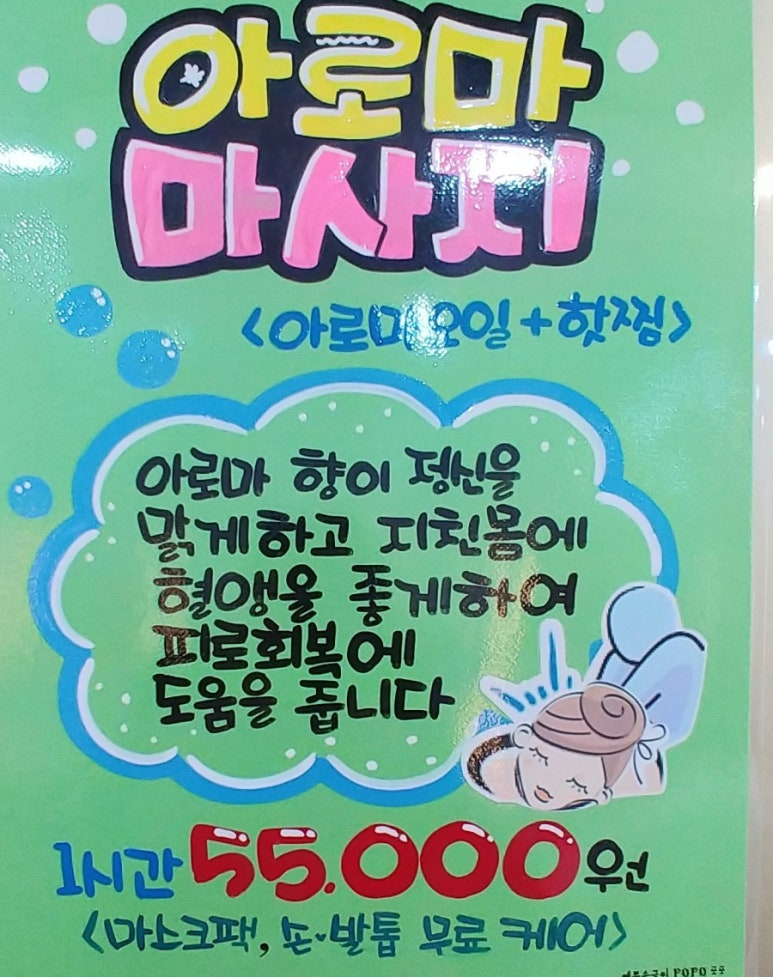 아로마
마사지
<아로마오일+핫찜>
아로마 향이 정신을
맑게하고 지친몸에
혈액을 좋게하여
피로회복에
도움을 줍니다
1시간 55.000원
<마스크팩, 손·발톱 무료 케어>
POPO